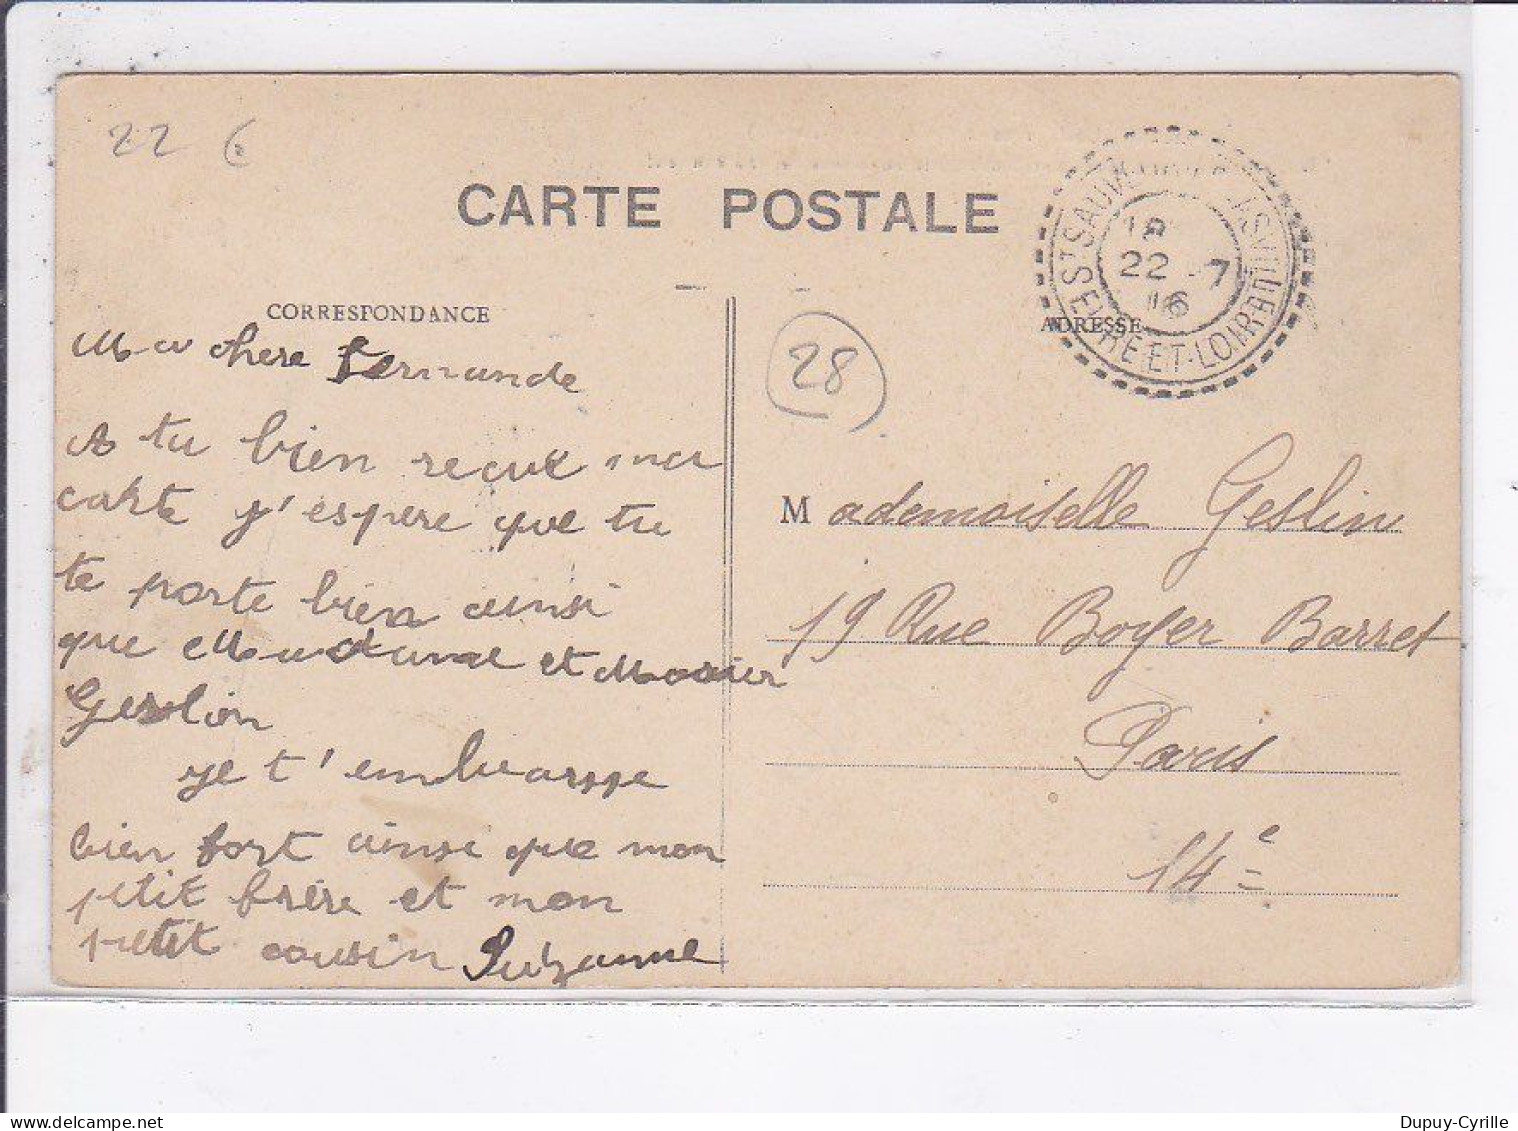 22 6
CARTE POSTALE
CORRESPONDANCE
Ma chere fernande
A tu bien recux ma
carte j'espere que tu
te porte bien ainsi
que Madame et Mosier
Geslion
je t'embrasse
bien fort ainsi que mon
petit frère et mon
petit cousin Suzanne
28
ST SAUV
22 -7
16
EURE-ET-LOIR
ADRESSE
Mademoiselle Geslin
19 Rue Boyer Barret
Paris
14e
Dupuy-Cyrille